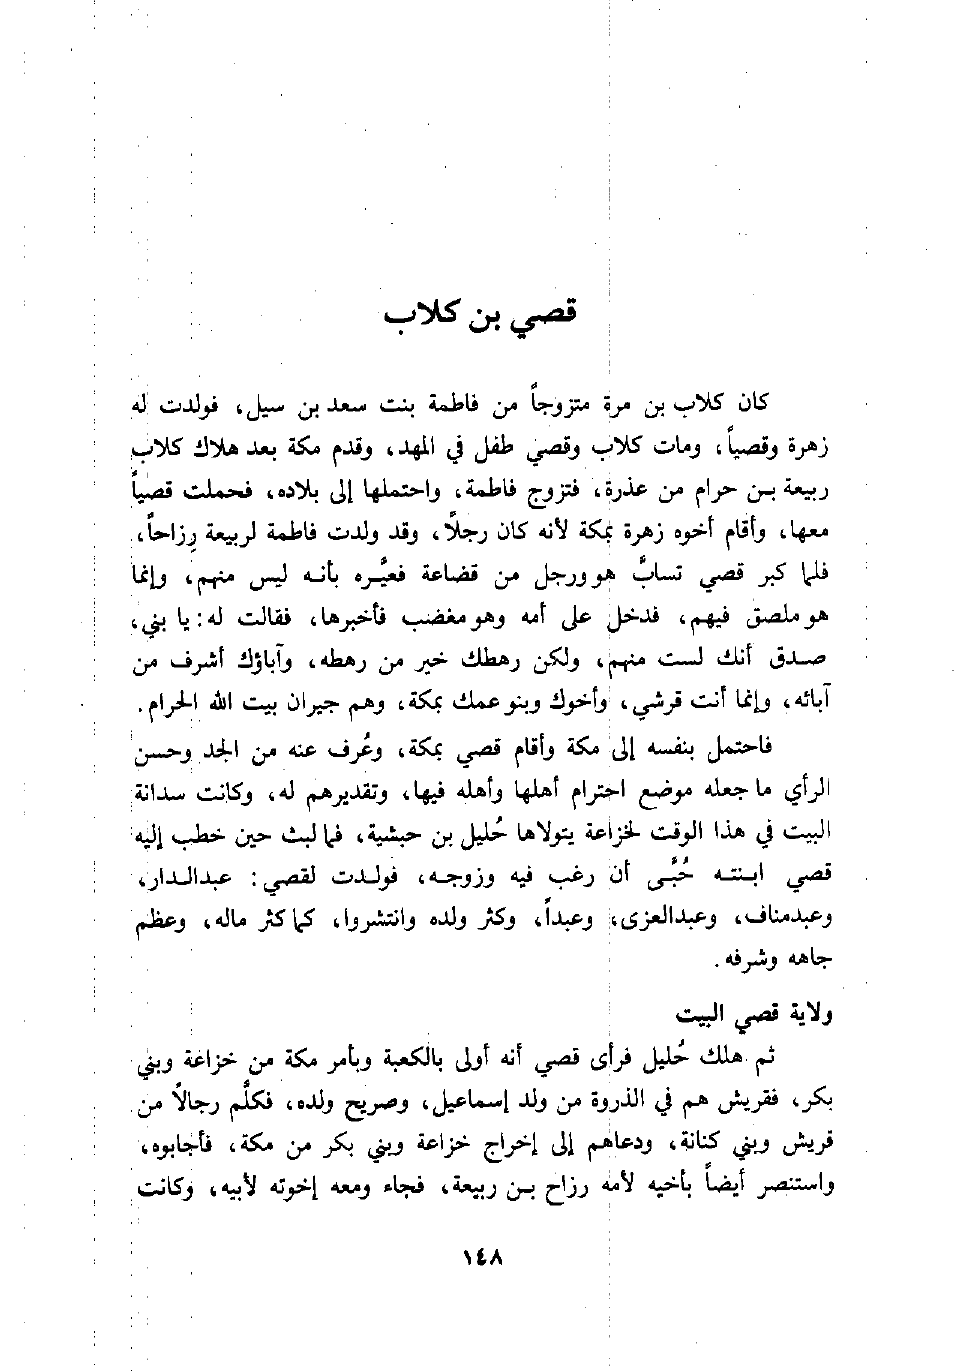 قصي بن كلاب
كان كلاب بن مرة متزوجاً من فاطمة بنت سعد بن سيل، فولدت له
زهرة وقصياً، ومات كلاب وقصي طفل في المهد، وقدم مكة بعد هلاك كلاب
ربيعة بن حرام من عذرة، فتزوج فاطمة، واحتملها إلى بلاده، فحملت قصياً
معها، وأقام أخوه زهرة بمكة لأنه كان رجلاً، وقد ولدت فاطمة لربيعة رِزاحاً،
فلما كبر قصي تسابَّ هو ورجل من قضاعة فعيَّره بأنه ليس منهم، وإنما
هو ملصق فيهم، فدخل على أمه وهو مغضب فأخبرها، فقالت له: يا بني،
صدق أنك لست منهم، ولكن رهطك خير من رهطه، وآباؤك أشرف من
آبائه، وإنما أنت قرشي، وأخوك وبنو عمك بمكة، وهم جيران بيت الله الحرام.
فاحتمل بنفسه إلى مكة وأقام قصي بمكة، وعُرف عنه من الجد وحسن
الرأي ما جعله موضع احترام أهلها وأهله فيها، وتقديرهم له، وكانت سدانة
البيت في هذا الوقت لخزاعة يتولاها حُليل بن حبشية، فما لبث حين خطب إليه
قصي ابنته حُبَّى أن رغب فيه وزوجه، فولدت لقصي: عبدالدار،
وعبدمناف، وعبدالعزى، وعبداً، وكثر ولده وانتشروا، كما كثر ماله، وعظم
جاهه وشرفه.
ولاية قصي البيت
ثم هلك حُليل فرأى قصي أنه أولى بالكعبة وبأمر مكة من خزاعة وبني
بكر، فقريش هم في الذروة من ولد إسماعيل، وصريح ولده، فكلَّم رجالاً من
قريش وبني كنانة، ودعاهم إلى إخراج خزاعة وبني بكر من مكة، فأجابوه،
واستنصر أيضاً بأخيه لأمه رزاح بن ربيعة، فجاء ومعه إخوته لأبيه، وكانت
١٤٨